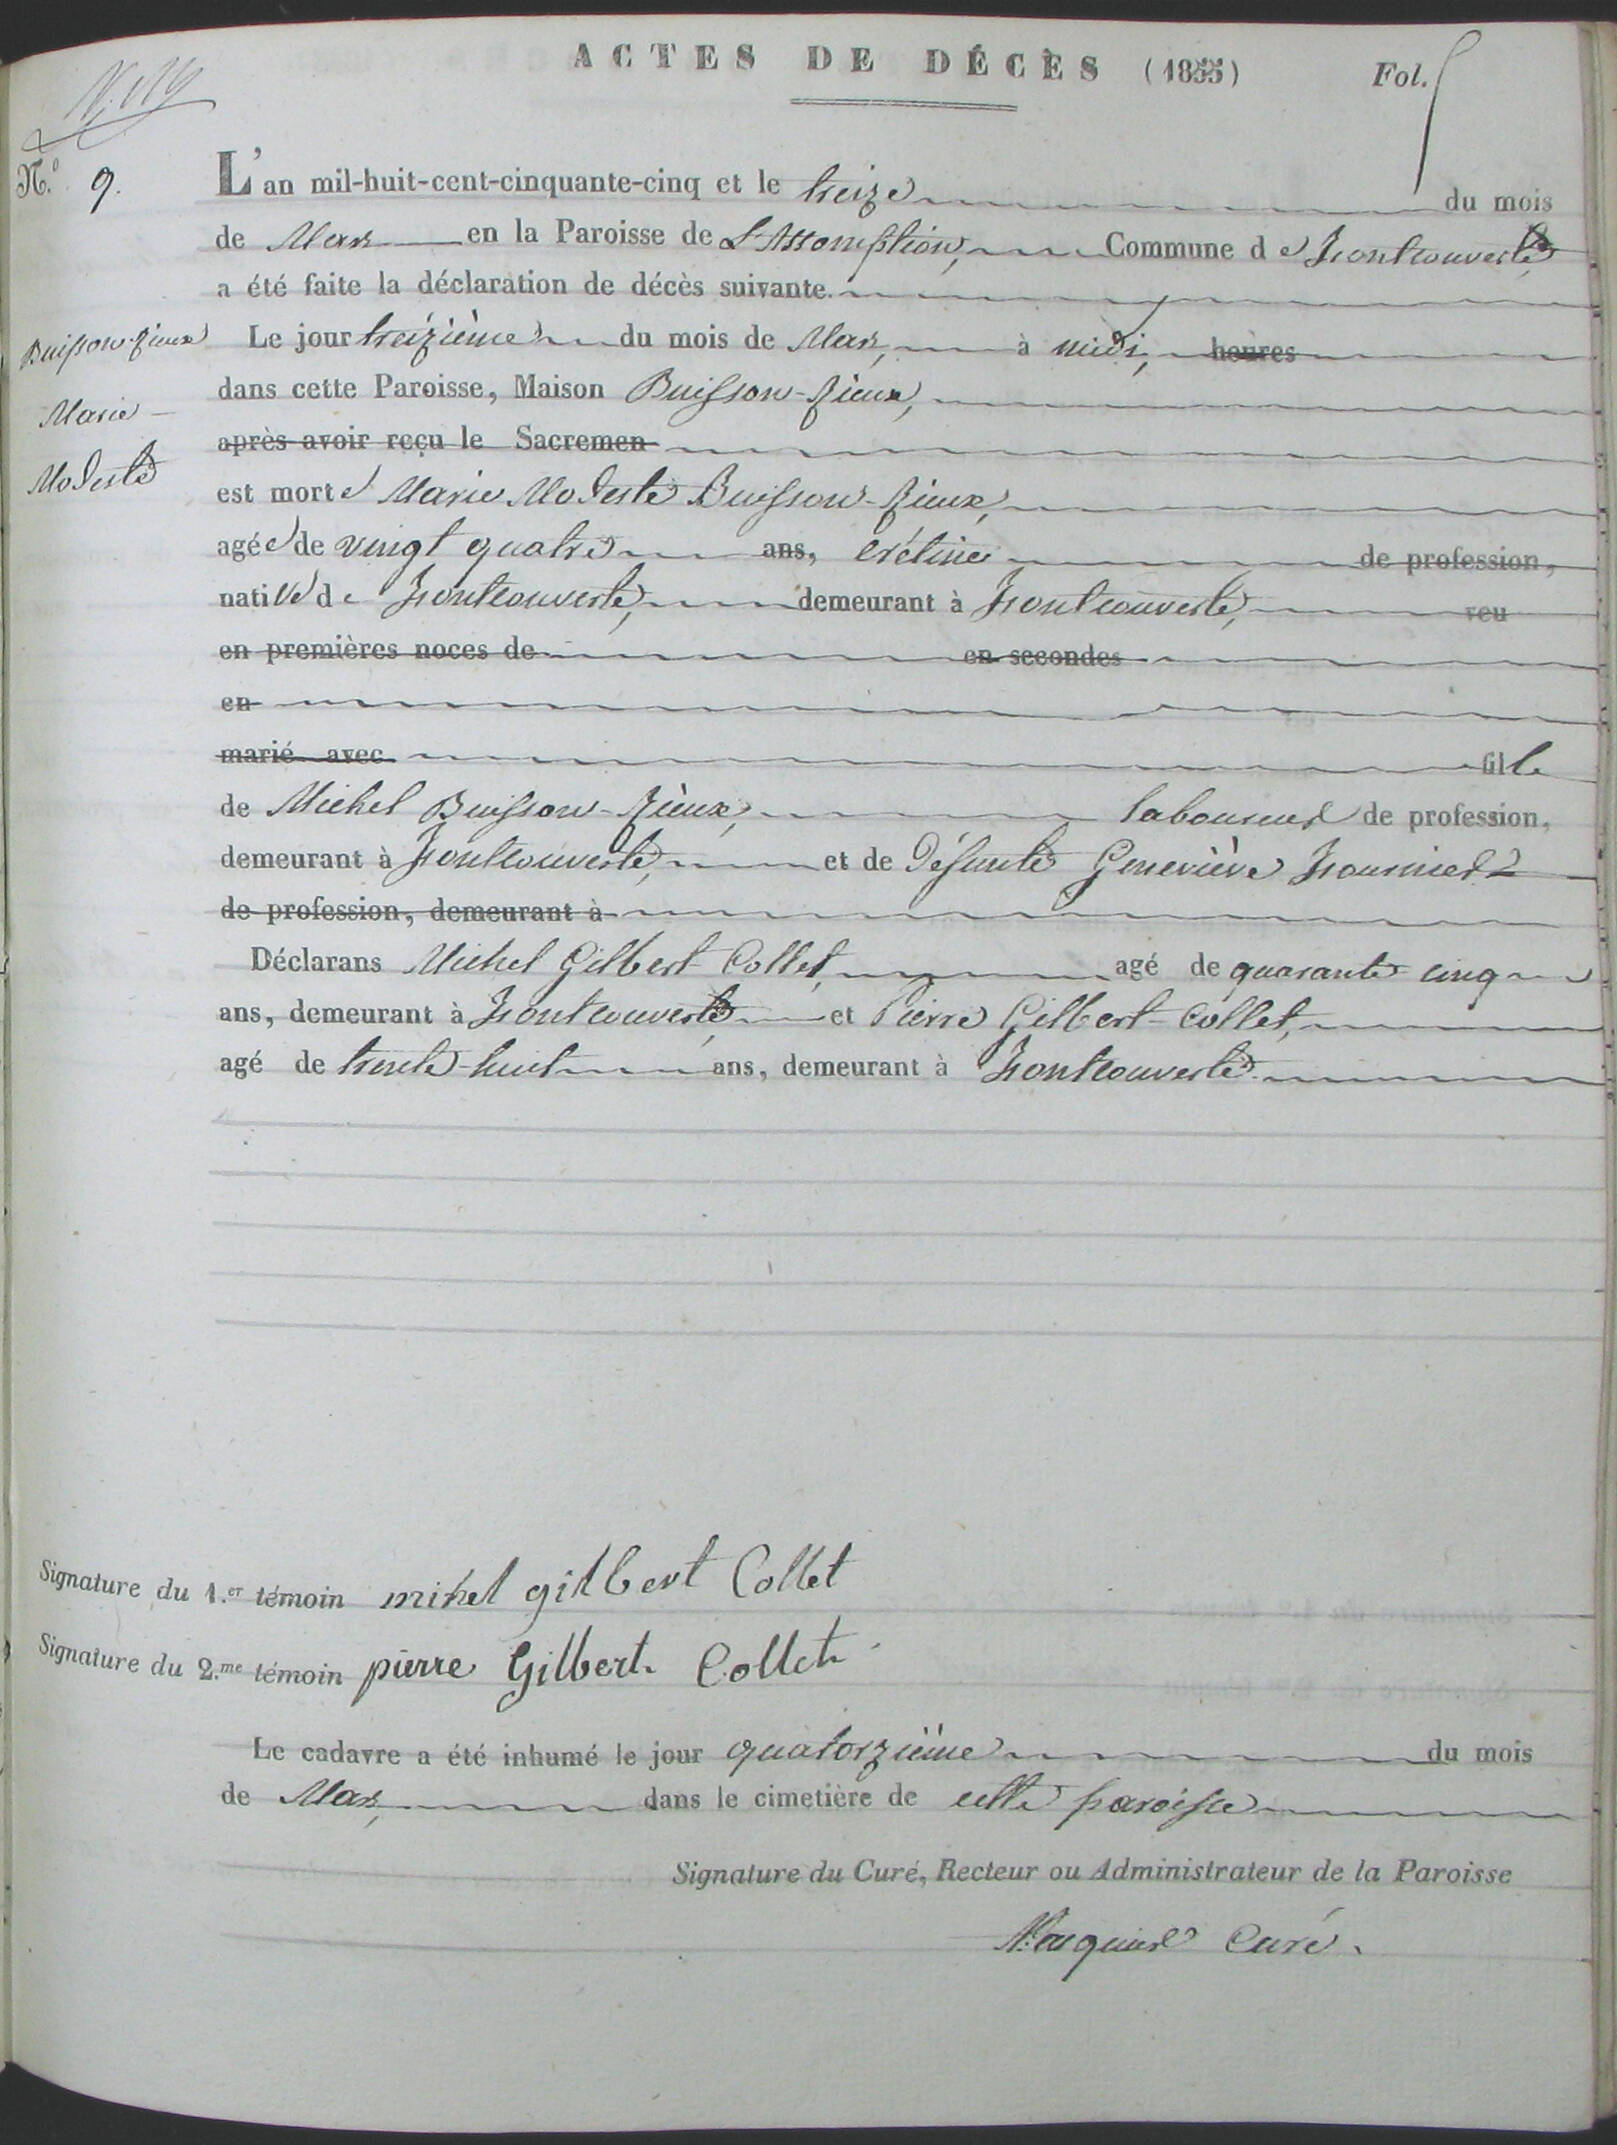 ACTES DE DÉCÈS (1855) Fol. 5
N.º 9. L'an mil-huit-cent-cinquante-cinq et le treize du mois
de Mars en la Paroisse de L'Assomption, Commune de Fontcouverte,
a été faite la déclaration de décès suivante.
Buisson-fieux Le jour treizième du mois de Mars, à midi, heures
Marie
dans cette Paroisse, Maison Buisson-fieux,
Modeste
après avoir reçu le Sacremen
est morte Marie Modeste Buisson-fieux,
agée de vingt quatre ans, crétine de profession,
native de Fontcouverte, demeurant à Fontcouverte, veu
en premières noces de en secondes
en
marié avec fille
de Michel Buisson-fieux, laboureur de profession,
demeurant à Fontcouverte, et de défunte Geneviève
de profession, demeurant à
Déclarans Michel Gilbert-Collet, agé de quarante-cinq
ans, demeurant à Fontcouverte, et Pierre Gilbert-Collet,
agé de trente-huit ans, demeurant à Fontcouverte.
Signature du 1.er témoin mihel gilbert Collet
Signature du 2.me témoin pierre Gilbert Collet
Le cadavre a été inhumé le jour quatorzième du mois
de Mars, dans le cimetière de cette paroisse
Signature du Curé, Recteur ou Administrateur de la Paroisse
Curé.